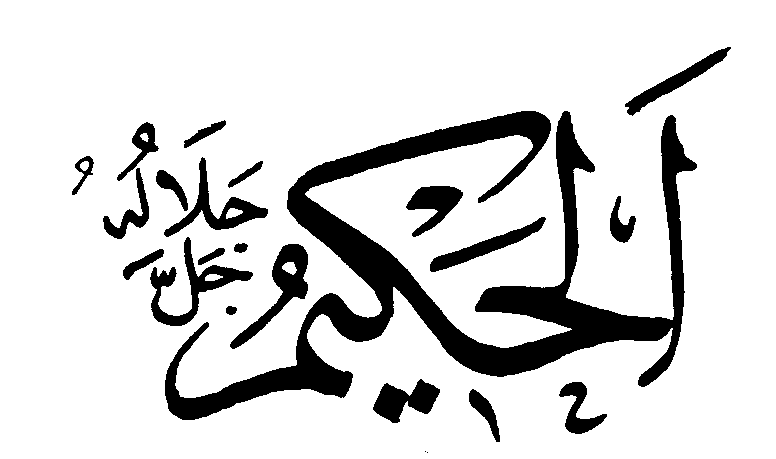 اَلْحَكِيمُ
جَلَّ جَلَالُهُ